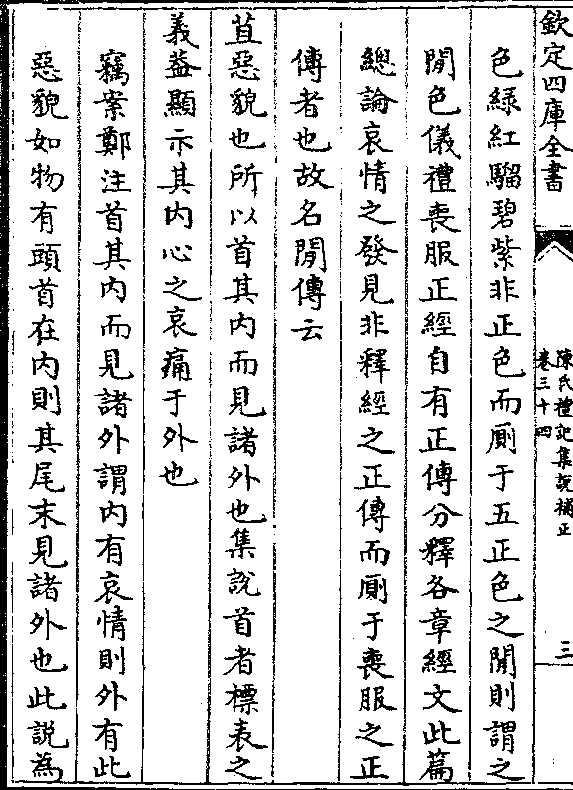 欽定四庫全書
陳氏禮記集說補正
卷三十四
三
色綠紅騮碧紫非正色而厠于五正色之閒則謂之
閒色儀禮喪服正經自有正傳分釋各章經文此篇
總論哀情之發見非釋經之正傳而厠于喪服之正
傳者也故名閒傳云
苴惡貌也所以首其内而見諸外也集說首者標表之
義葢顯示其内心之哀痛于外也
竊案鄭注首其内而見諸外謂内有哀情則外有此
惡貌如物有頭首在内則其尾末見諸外也此說為